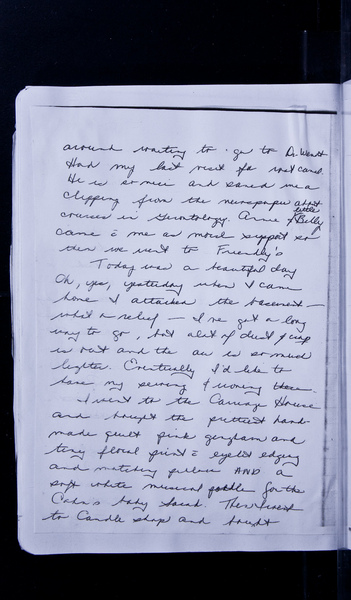 around waiting to go to Dr. Wentt
Had my last visit for root canal.
He is so nice and saved me a
clipping from the newspaper about
courses in Gerontology. Anne & little Billy
came c me as moral support so
then we went to Friendly's
Today was a beautiful day
Oh, yes, yesterday when I came
home I attacked the basement –
what a relief – I've got a long
way to go, but alot of dust & crap
is out and the air is so much
lighter. Eventually I'd like to
have my sewing & ironing there.
I went to the Carriage House
and bought the prettiest hand-
made quilt pink gingham and
tiny floral print c eyelet edging
and matching pillow AND a
soft white musical for the
baby . Then I went
to Candle shop and bought